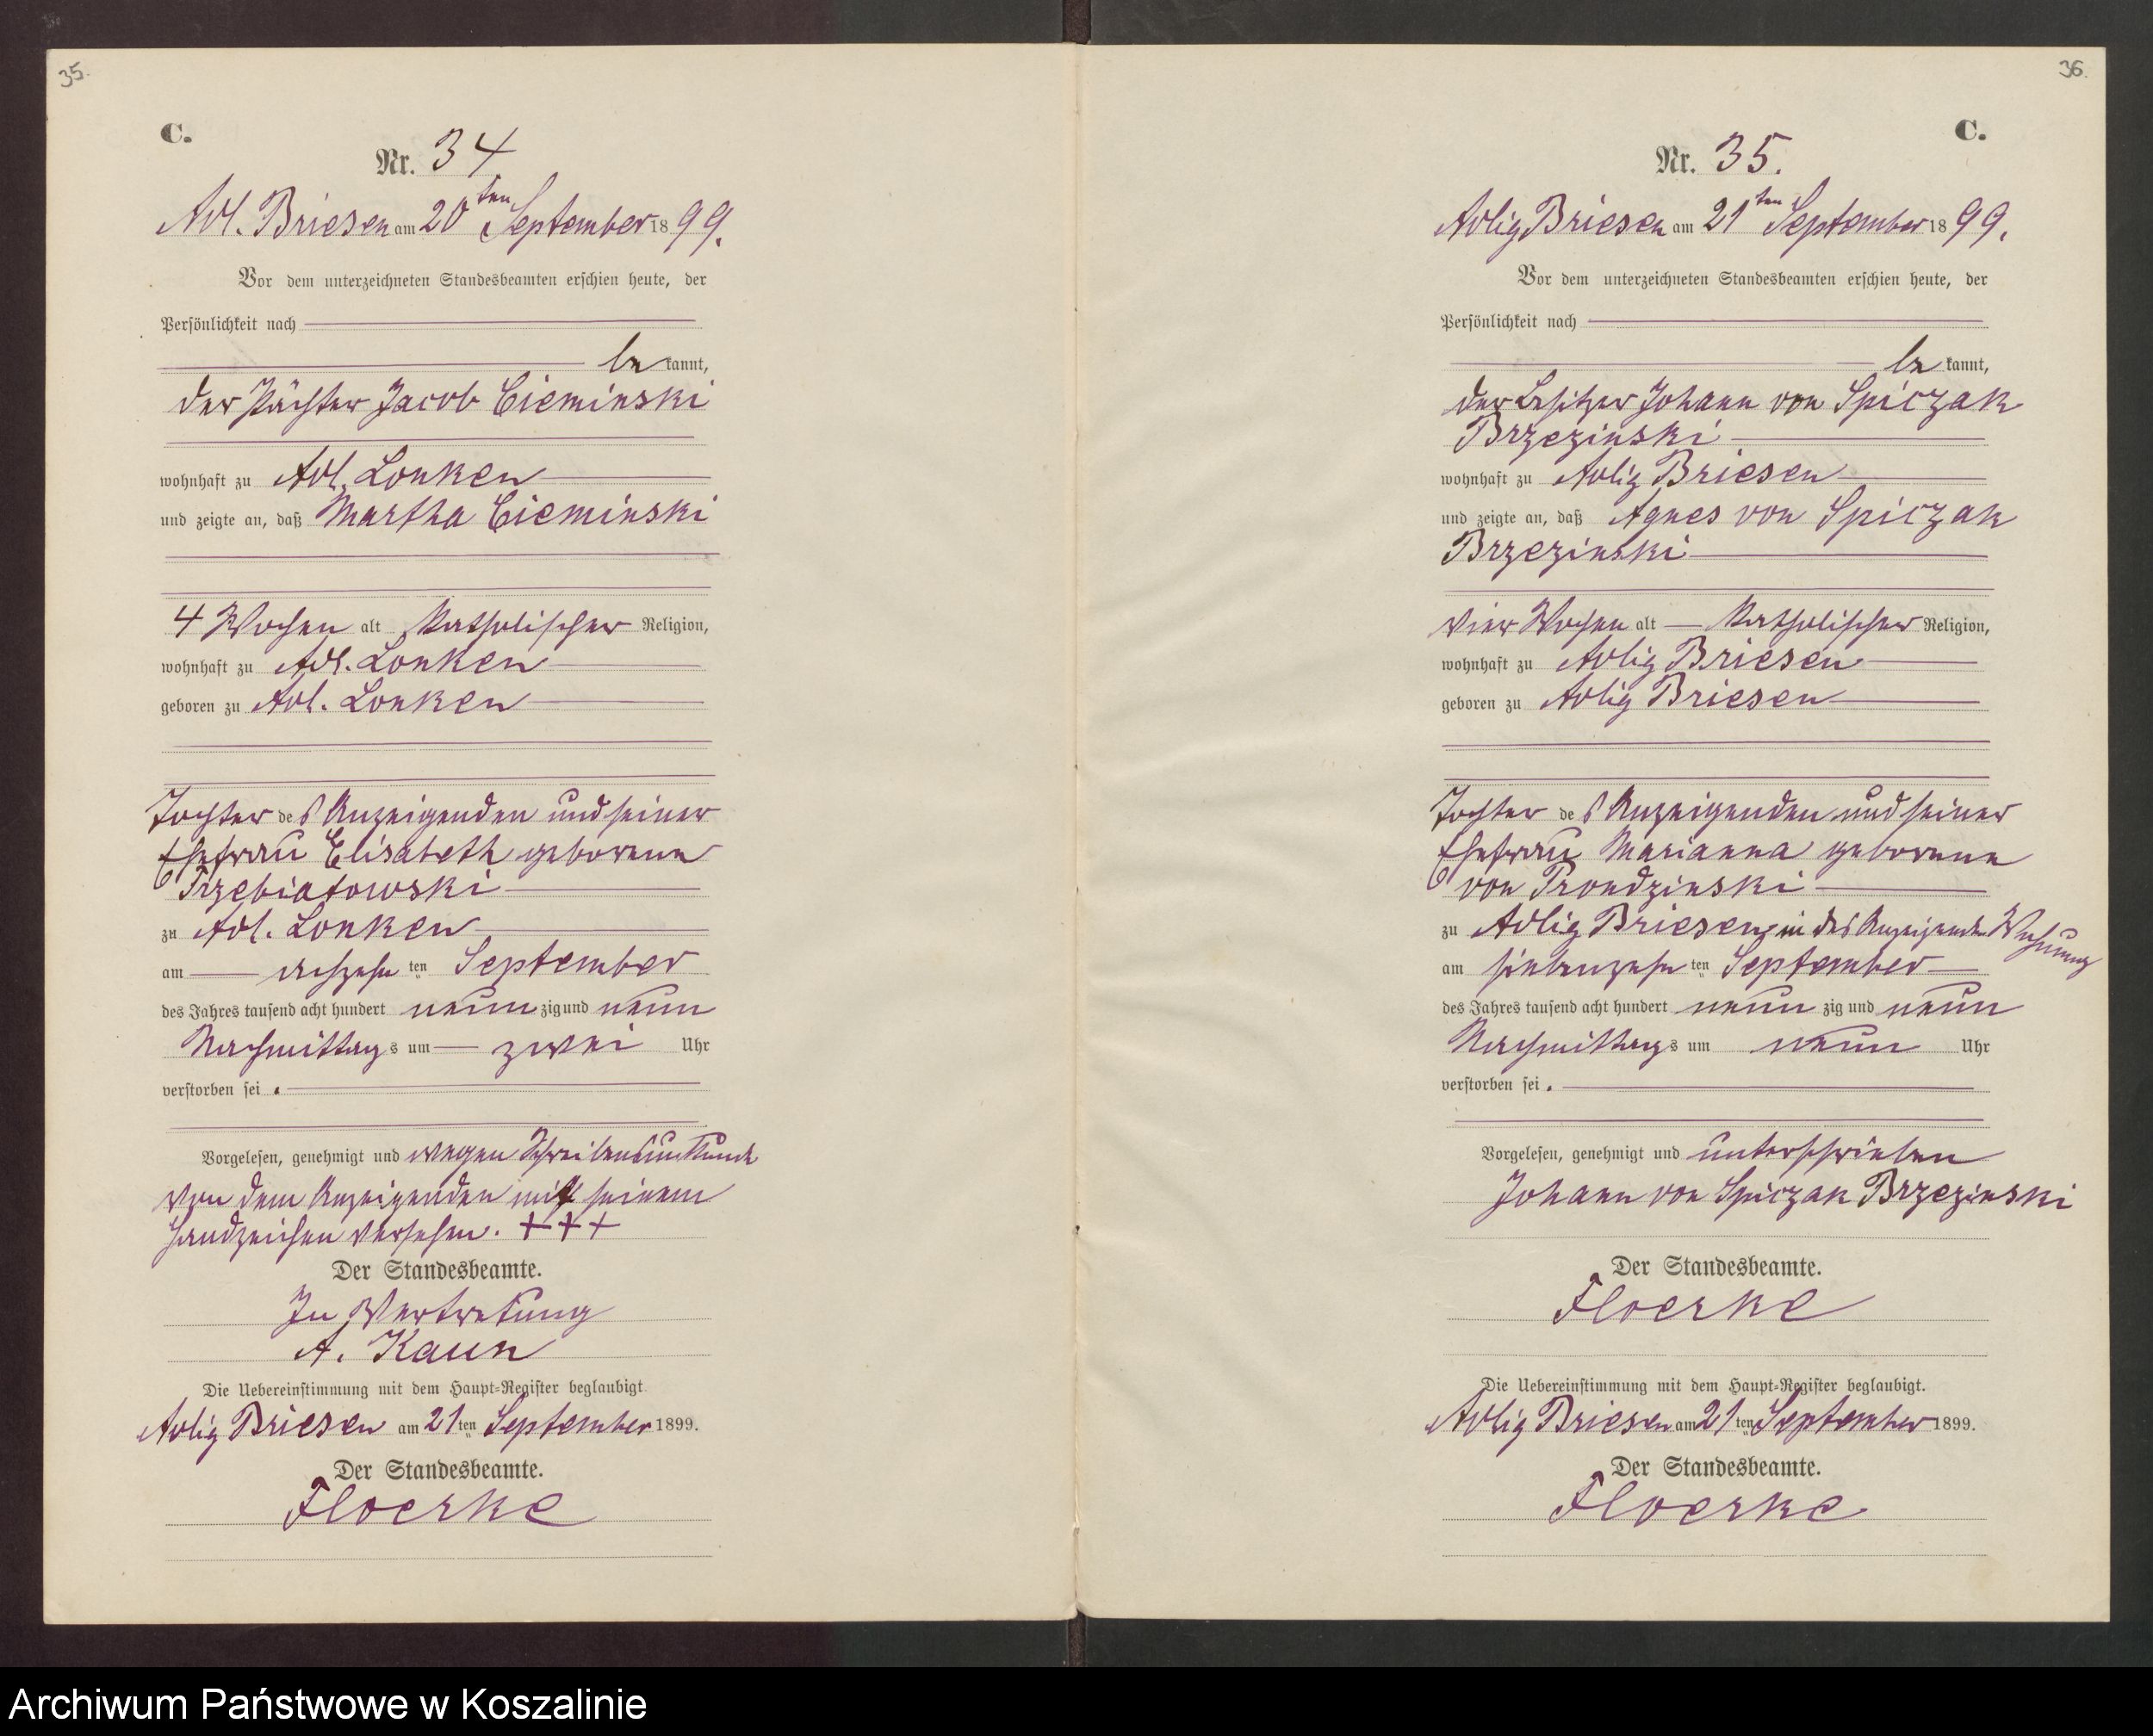 35.
C.
Nr. 34
Adl. Briesen am 20ten September 1899.
Vor dem unterzeichneten Standesbeamten erschien heute, der
Persönlichkeit nach
bekannt,
der Pächter Jacob Cieminski
wohnhaft zu Adl. Lonken
und zeigte an, daß Martha Cieminski
4 Wochen alt katholischer Religion,
wohnhaft zu Adl. Lonken
geboren zu Adl. Lonken
Tochter des Anzeigenden und seiner
Ehefrau Elisabeth geborene
Trzebiatowski
zu Adl. Lonken
am achzehnten September
des Jahres tausend acht hundert neunzig und neun
Nachmittags um zwei Uhr
verstorben sei.
Vorgelesen, genehmigt und wegen Schreibensunkunde
von dem Anzeigenden mit seinem
Handzeichen versehen. +++
Der Standesbeamte.
In Vertretung
A. Kaun
Die Uebereinstimmung mit dem Haupt-Register beglaubigt
Adlig Briesen am 21ten September 1899.
Der Standesbeamte.
Floerke
36.
C.
Nr. 35.
Adlig Briesen am 21ten September 1899.
Vor dem unterzeichneten Standesbeamten erschien heute, der
Persönlichkeit nach
bekannt,
der Besitzer Johann von Spiczak
Brzezinski
wohnhaft zu Adlig Briesen
und zeigte an, daß Agnes von Spiczak
Brzezinski
vier Wochen alt – katholischer Religion,
wohnhaft zu Adlig Briesen
geboren zu Adlig Briesen
Tochter des Anzeigenden und seiner
Ehefrau Marianna geborene
von Prondzinski
zu Adlig Briesen, in des Anzeigenden Wohnung
am siebenzehnten September
des Jahres tausend acht hundert neunzig und neun
Nachmittags um neun Uhr
verstorben sei.
Vorgelesen, genehmigt und unterschrieben
Johann von Spiczak Brzezinski
Der Standesbeamte.
Floerke
Die Uebereinstimmung mit dem Haupt-Register beglaubigt.
Adlig Briesen am 21ten September 1899.
Der Standesbeamte.
Floerke
Archiwum Państwowe w Koszalinie